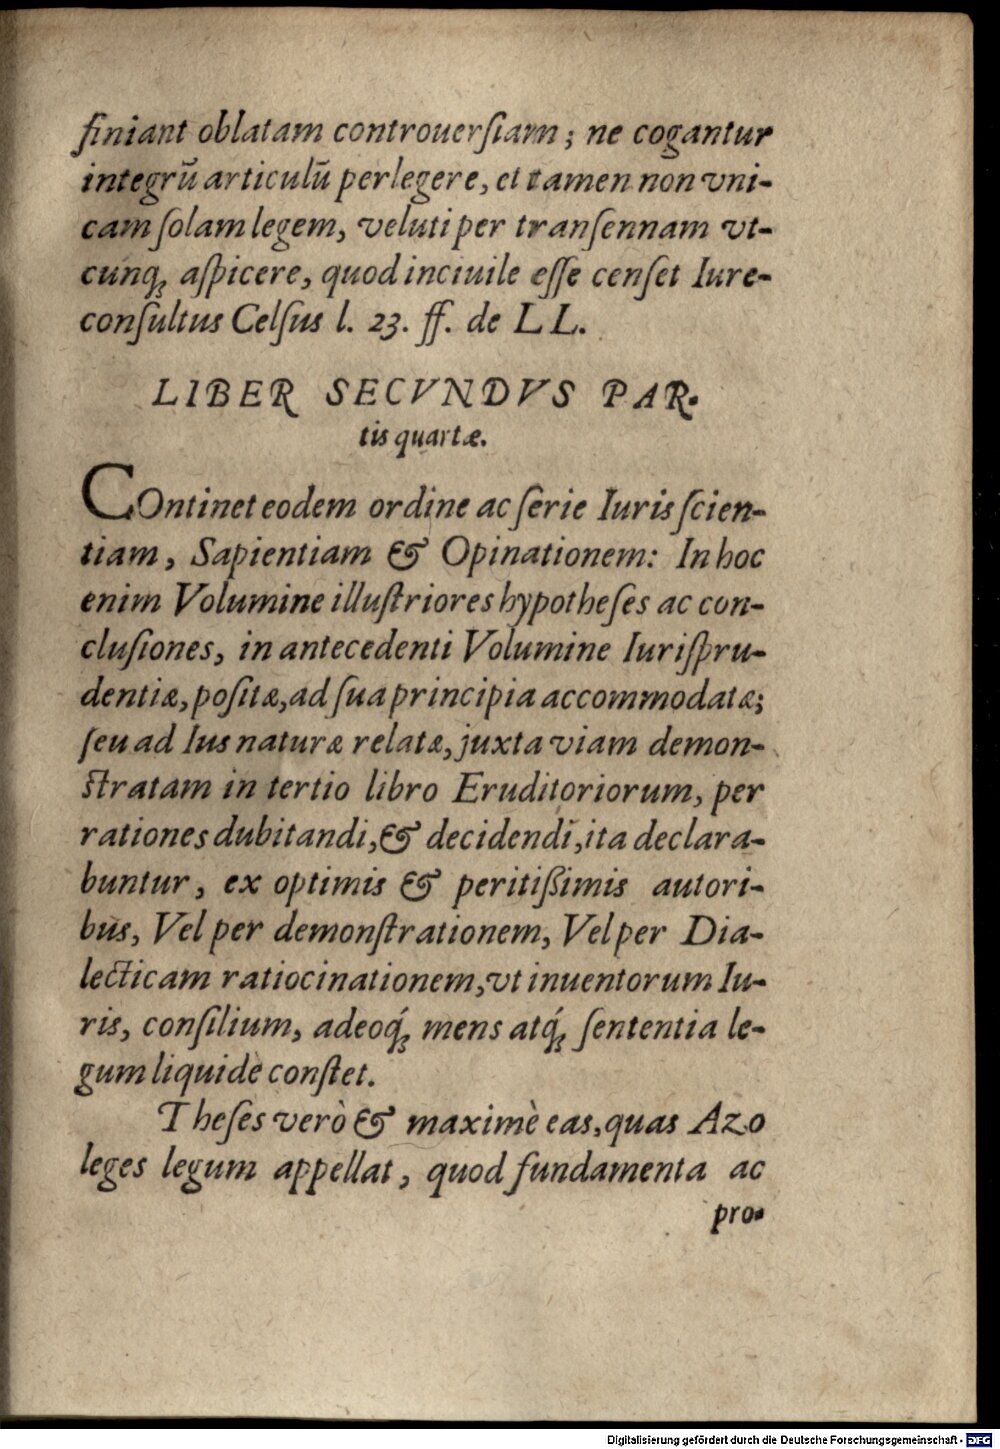 finiant oblatam controuerſiam; ne cogantur
integrũ articulũ perlegere, et tamen non vni-
cam ſolam legem, veluti per tranſennam vt-
cunq́ꝫ aſpicere, quod inciuile eſſe cenſet Iure-
conſultus Celſus l. 23. ff. de LL.
LIBER SECVNDVS PAR-
tis quartæ.
COntinet eodem ordine ac ſerie Iuris ſcien-
tiam, Sapientiam & Opinationem: In hoc
enim Volumine illuſtriores hypotheſes ac con-
cluſiones, in antecedenti Volumine Iuriſpru-
dentiæ, poſitæ, ad ſua principia accommodatæ;
ſeu ad Ius naturæ relatæ, juxta viam demon-
ſtratam in tertio libro Eruditoriorum, per
rationes dubitandi, & decidendi, ita declara-
buntur, ex optimis & peritißimis autori-
bus, Vel per demonſtrationem, Vel per Dia-
lecticam ratiocinationem, vt inuentorum Iu-
ris, conſilium, adeoq́ꝫ mens atq́ꝫ ſententia le-
gum liquidè conſtet.
Theſes verò & maximè eas, quas Azo
leges legum appellat, quod fundamenta ac
pro-
Digitalisierung gefördert durch die Deutsche Forschungsgemeinschaft - DFG